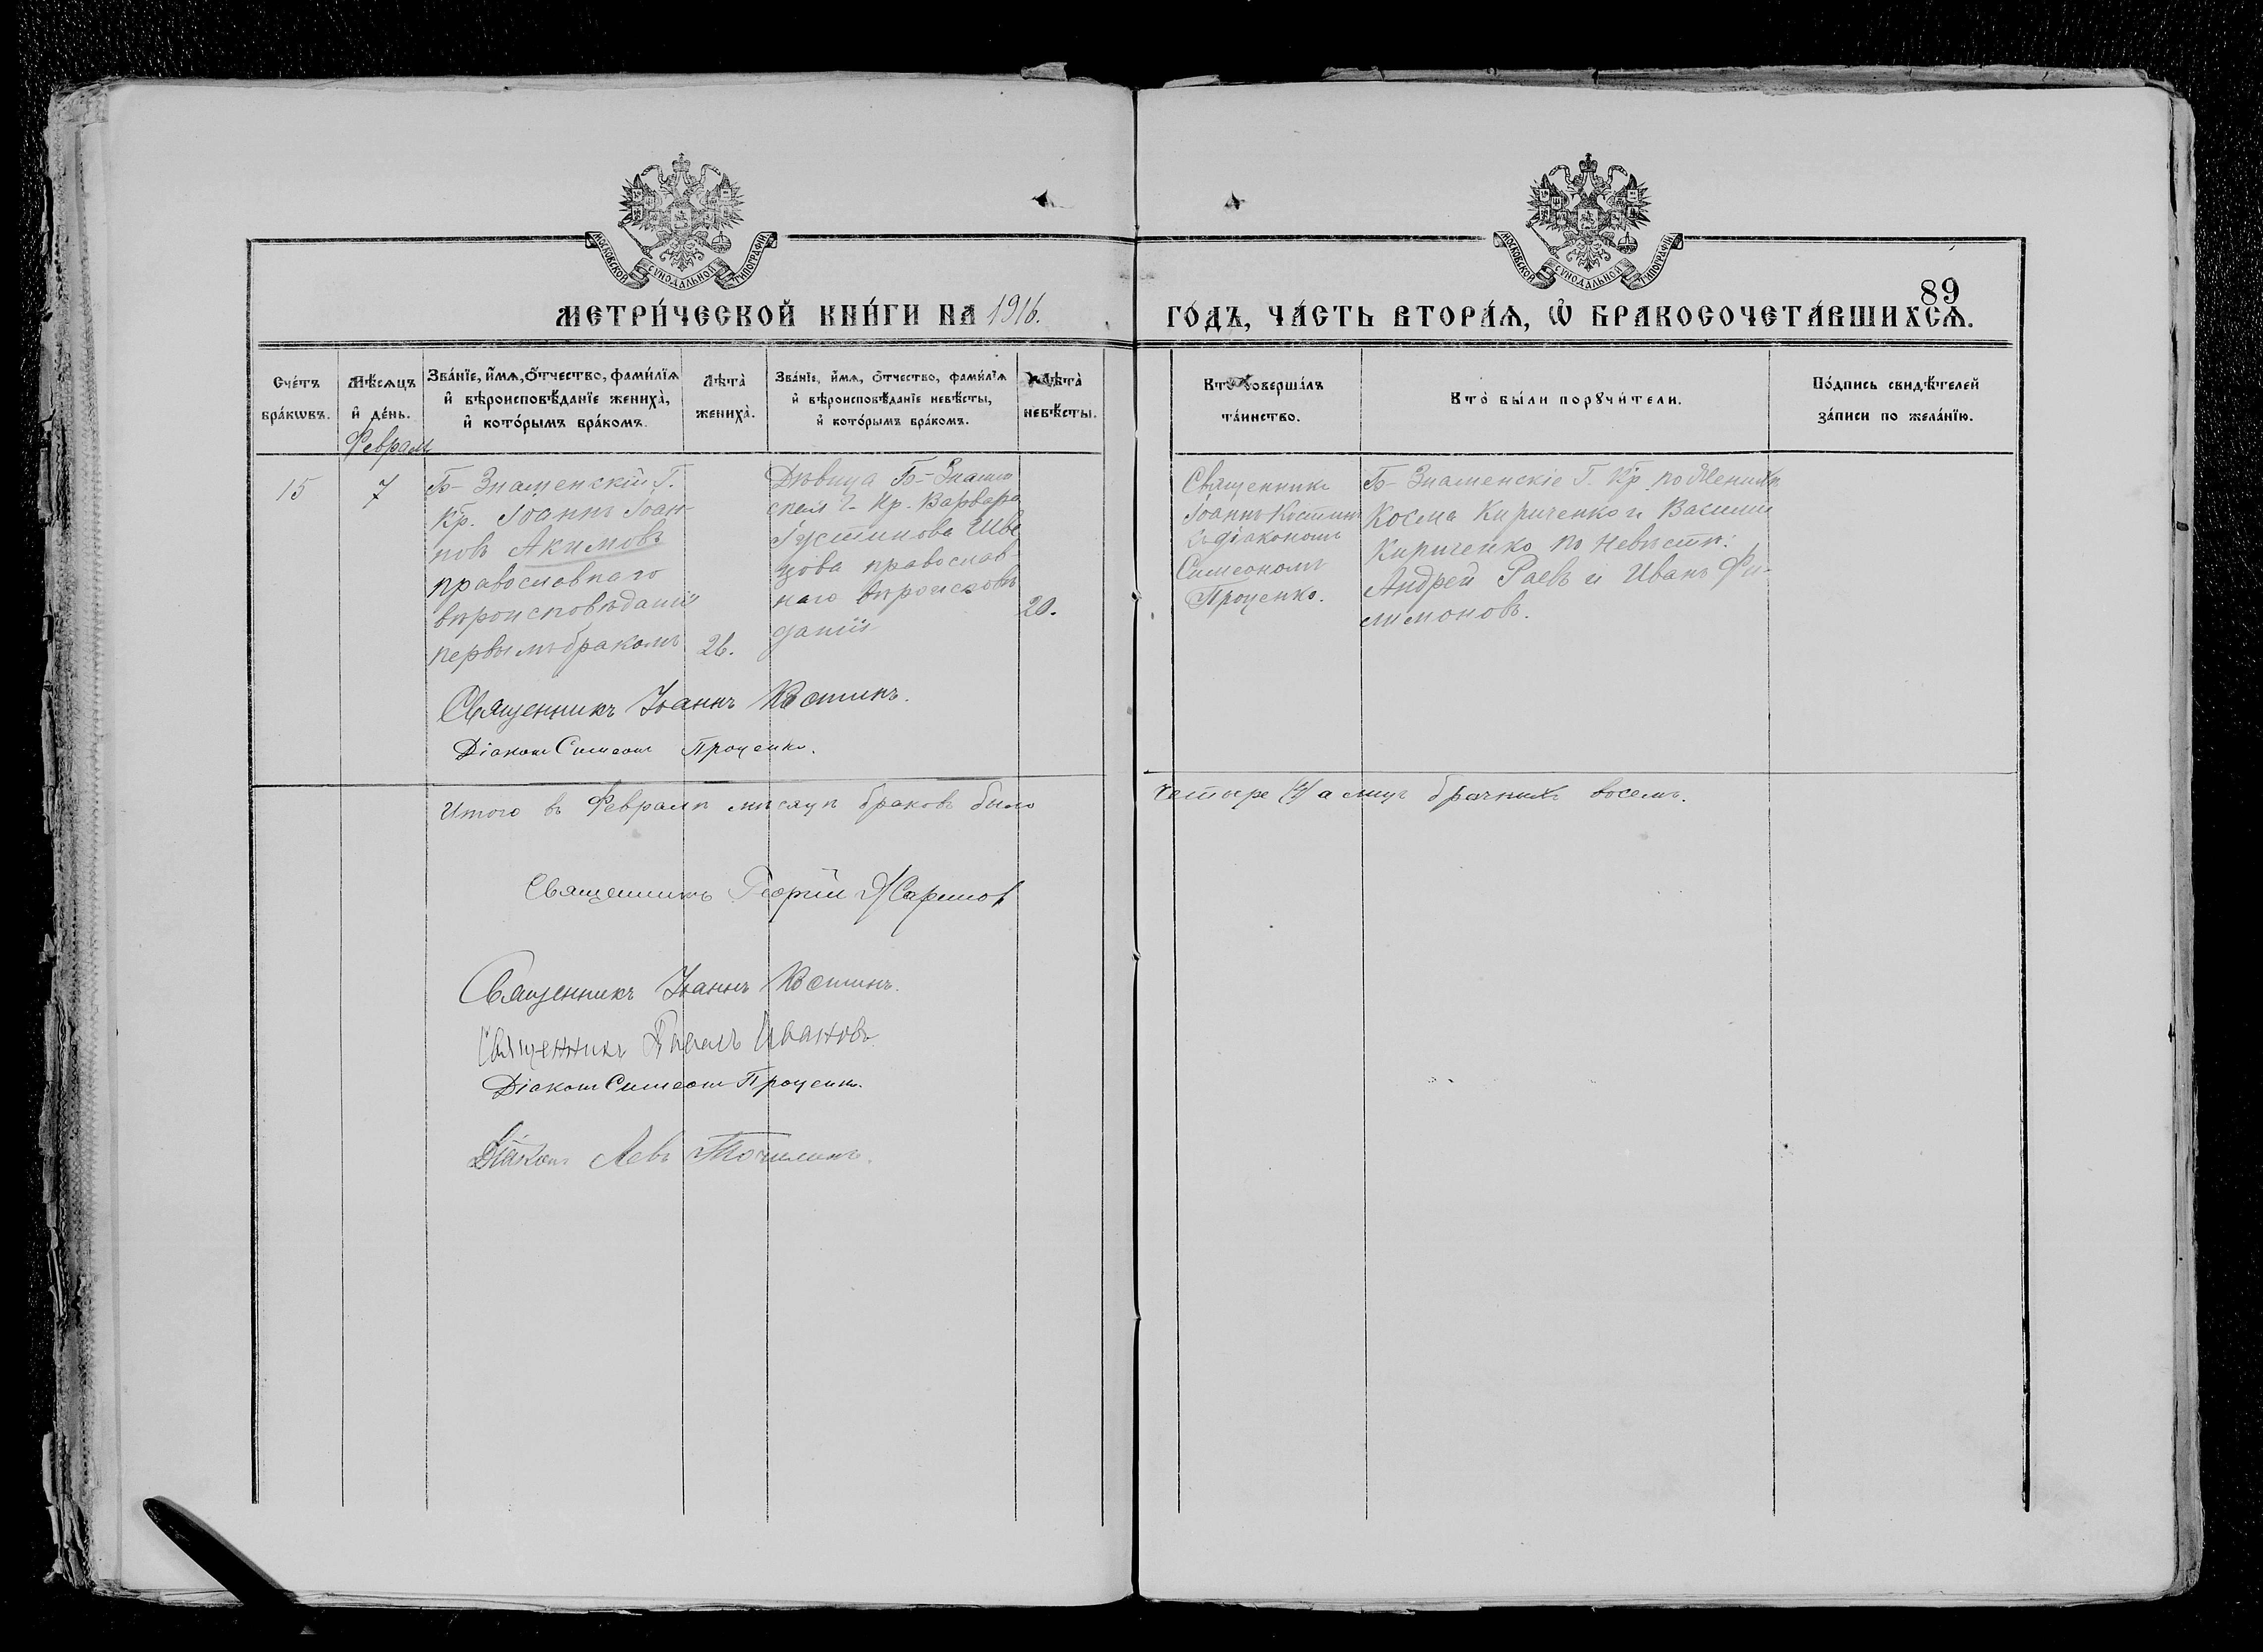 МОСКОВСКОЙ СѴНОДАЛЬНОЙ ТИПОГРАФІИ
МОСКОВСКОЙ СѴНОДАЛЬНОЙ ТИПОГРАФІИ
89
МЕТРИ́ЧЕСКОЙ КНИ́ГИ НА 1916.
ГО́ДЪ, ЧА́СТЬ ВТОРА́Ѧ, Ѡ҆ БРАКОСОЧЕТА́ВШИХСѦ.
Сче́тъ
бра́кѡвъ.
Мѣ́сѧцъ
и҆ де́нь.
Зва́нїе, и҆́мѧ, о҆́тчество, фами́лїѧ
и҆ вѣроисповѣ́данїе жениха̀,
и҆ кото́рымъ бра́комъ.
Лѣта̀
жениха̀.
Зва́нїе, и҆́мѧ, о҆́тчество, фами́лїѧ
и҆ вѣроисповѣ́данїе невѣ́сты,
и҆ кото́рымъ бра́комъ.
Лѣта̀
невѣ́сты.
Кто̀ соверша́лъ
та́инство.
Кто̀ бы́ли порꙋчи́тели.
По́дпись свидѣ́телей
за́писи по жела́нїю.
Февраль
15
7
Б-Знаменскій Г.
Кр. Іоаннъ Іоан-
новъ Акимовъ
православнаго
вѣроисповѣданія
первымъ бракомъ
26.
Дѣвица Б-Знаме
ская Г. Кр. Варвара
Іустинова Шве
цова православ-
наго вѣроисповѣ
данія
20.
Священникъ
Іоаннъ Костинъ
съ діакономъ
Симеономъ
Проценко.
Б-Знаменскіе Г. Кр. по Женихѣ
Косма Кириченко и Василій
Кириченко по Невѣстѣ:
Андрей Раевъ и Иванъ Фи-
лимоновъ.
Священникъ Іоаннъ Костинъ.
Діаконъ Симеонъ Проценко.
Итого въ Февралѣ мѣсяцѣ браковъ было
четыре (4) а лицъ брачныхъ восемь.
Священникъ Георгій
Священникъ Іоаннъ Костинъ.
Священникъ Павелъ Ивановъ
Діаконъ Симеонъ Проценко.
Діаконъ Левъ Точилинъ.